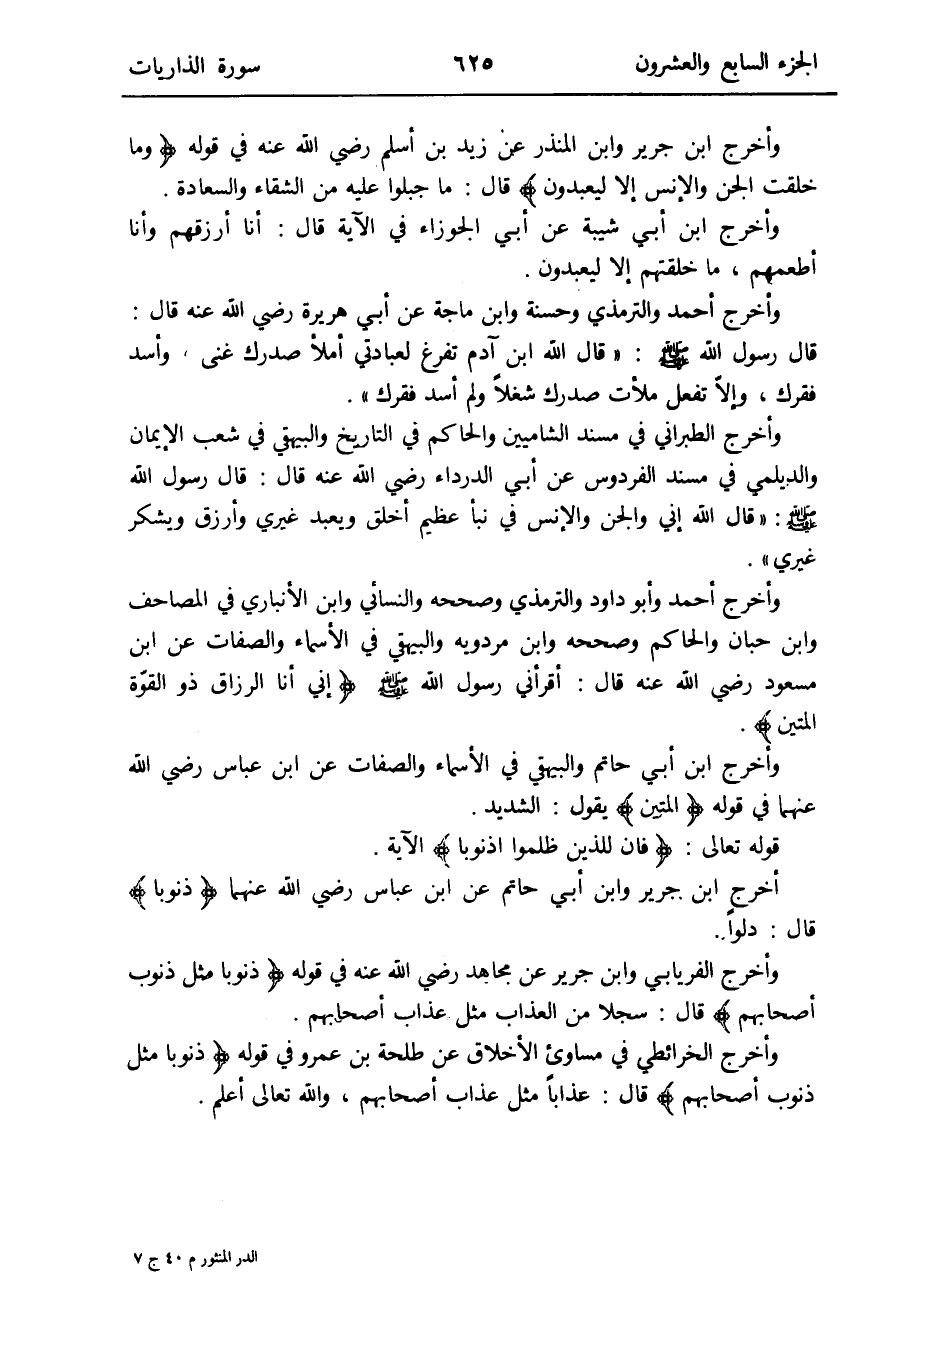 الجزء السابع والعشرون ٦٢٥ سورة الذاريات
وأخرج ابن جرير وابن المنذر عن زيد بن أسلم رضي الله عنه في قوله ﴿ وما
خلقت الجن والإنس إلا ليعبدون ﴾ قال : ما جبلوا عليه من الشقاء والسعادة .
وأخرج ابن أبي شيبة عن أبي الجوزاء في الآية قال : أنا أرزقهم وأنا
أطعمهم ، ما خلقتهم إلا ليعبدون .
وأخرج أحمد والترمذي وحسنة وابن ماجة عن أبي هريرة رضي الله عنه قال :
قال رسول الله ﷺ : « قال الله ابن آدم تفرغ لعبادتي أملأ صدرك غنى ، وأسد
فقرك ، وإلاّ تفعل ملأت صدرك شغلاً ولم أسد فقرك » .
وأخرج الطبراني في مسند الشاميين والحاكم في التاريخ والبيهقي في شعب الإيمان
والديلمي في مسند الفردوس عن أبي الدرداء رضي الله عنه قال : قال رسول الله
ﷺ : « قال الله إني والجن والإنس في نبأ عظيم أخلق ويعبد غيري وأرزق ويشكر
غيري » .
وأخرج أحمد وأبو داود والترمذي وصححه والنسائي وابن الأنباري في المصاحف
وابن حبان والحاكم وصححه وابن مردويه والبيهقي في الأسماء والصفات عن ابن
مسعود رضي الله عنه قال : أقرأني رسول الله ﷺ ﴿ إني أنا الرزاق ذو القوّة
المتين ﴾ .
وأخرج ابن أبي حاتم والبيهقي في الأسماء والصفات عن ابن عباس رضي الله
عنهما في قوله ﴿ المتين ﴾ يقول : الشديد .
قوله تعالى : ﴿ فان للذين ظلموا اذنوبا ﴾ الآية .
أخرج ابن جرير وابن أبي حاتم عن ابن عباس رضي الله عنهما ﴿ ذنوبا ﴾
قال : دلواً .
وأخرج الفريابي وابن جرير عن مجاهد رضي الله عنه في قوله ﴿ ذنوبا مثل ذنوب
أصحابهم ﴾ قال : سجلا من العذاب مثل عذاب أصحابهم .
وأخرج الخرائطي في مساوئ الأخلاق عن طلحة بن عمرو في قوله ﴿ ذنوبا مثل
ذنوب أصحابهم ﴾ قال : عذاباً مثل عذاب أصحابهم ، والله تعالى أعلم .
الدر المنثور م ٤٠ ج ٧